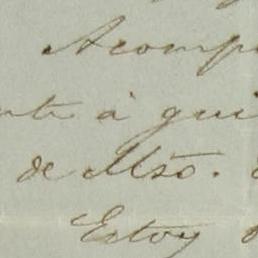 Acomp
nte á qui
de Mṡo.
Estoy